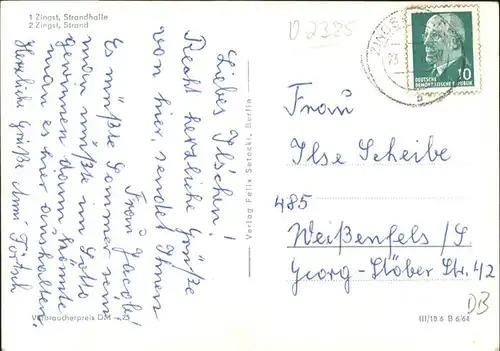 1 Zingst, Strandhalle
2 Zingst, Strand
D 2385
ZINGST
23
b
DEUTSCHE
DEMOKRATISCHE REPUBLIK
10
Liebes Ilschen!
Recht herzliche Grüße
von hier, sendet Ihnen
Frau Jacobs!
Es müßte Sommer sein
man müßte im Lotto
gewinnen dann könnte
man es hier aushalten.
Herzliche Grüße
Verlag Felix Setecki, Berlin
Frau
Ilse Scheibe
485
Weißenfels/S.
Georg-Stöber Str. 42
DB
Verbraucherpreis DM -,25
III/18.6 B 6/64